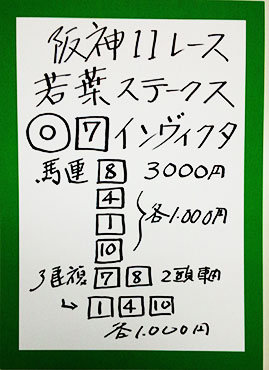 阪神11レース
若葉ステークス
◎ 7 インヴィクタ
馬連 8 3000円
4
1 各1.000円
10
3連複 7 8 2頭軸
↳ 1 4 10
各1.000円